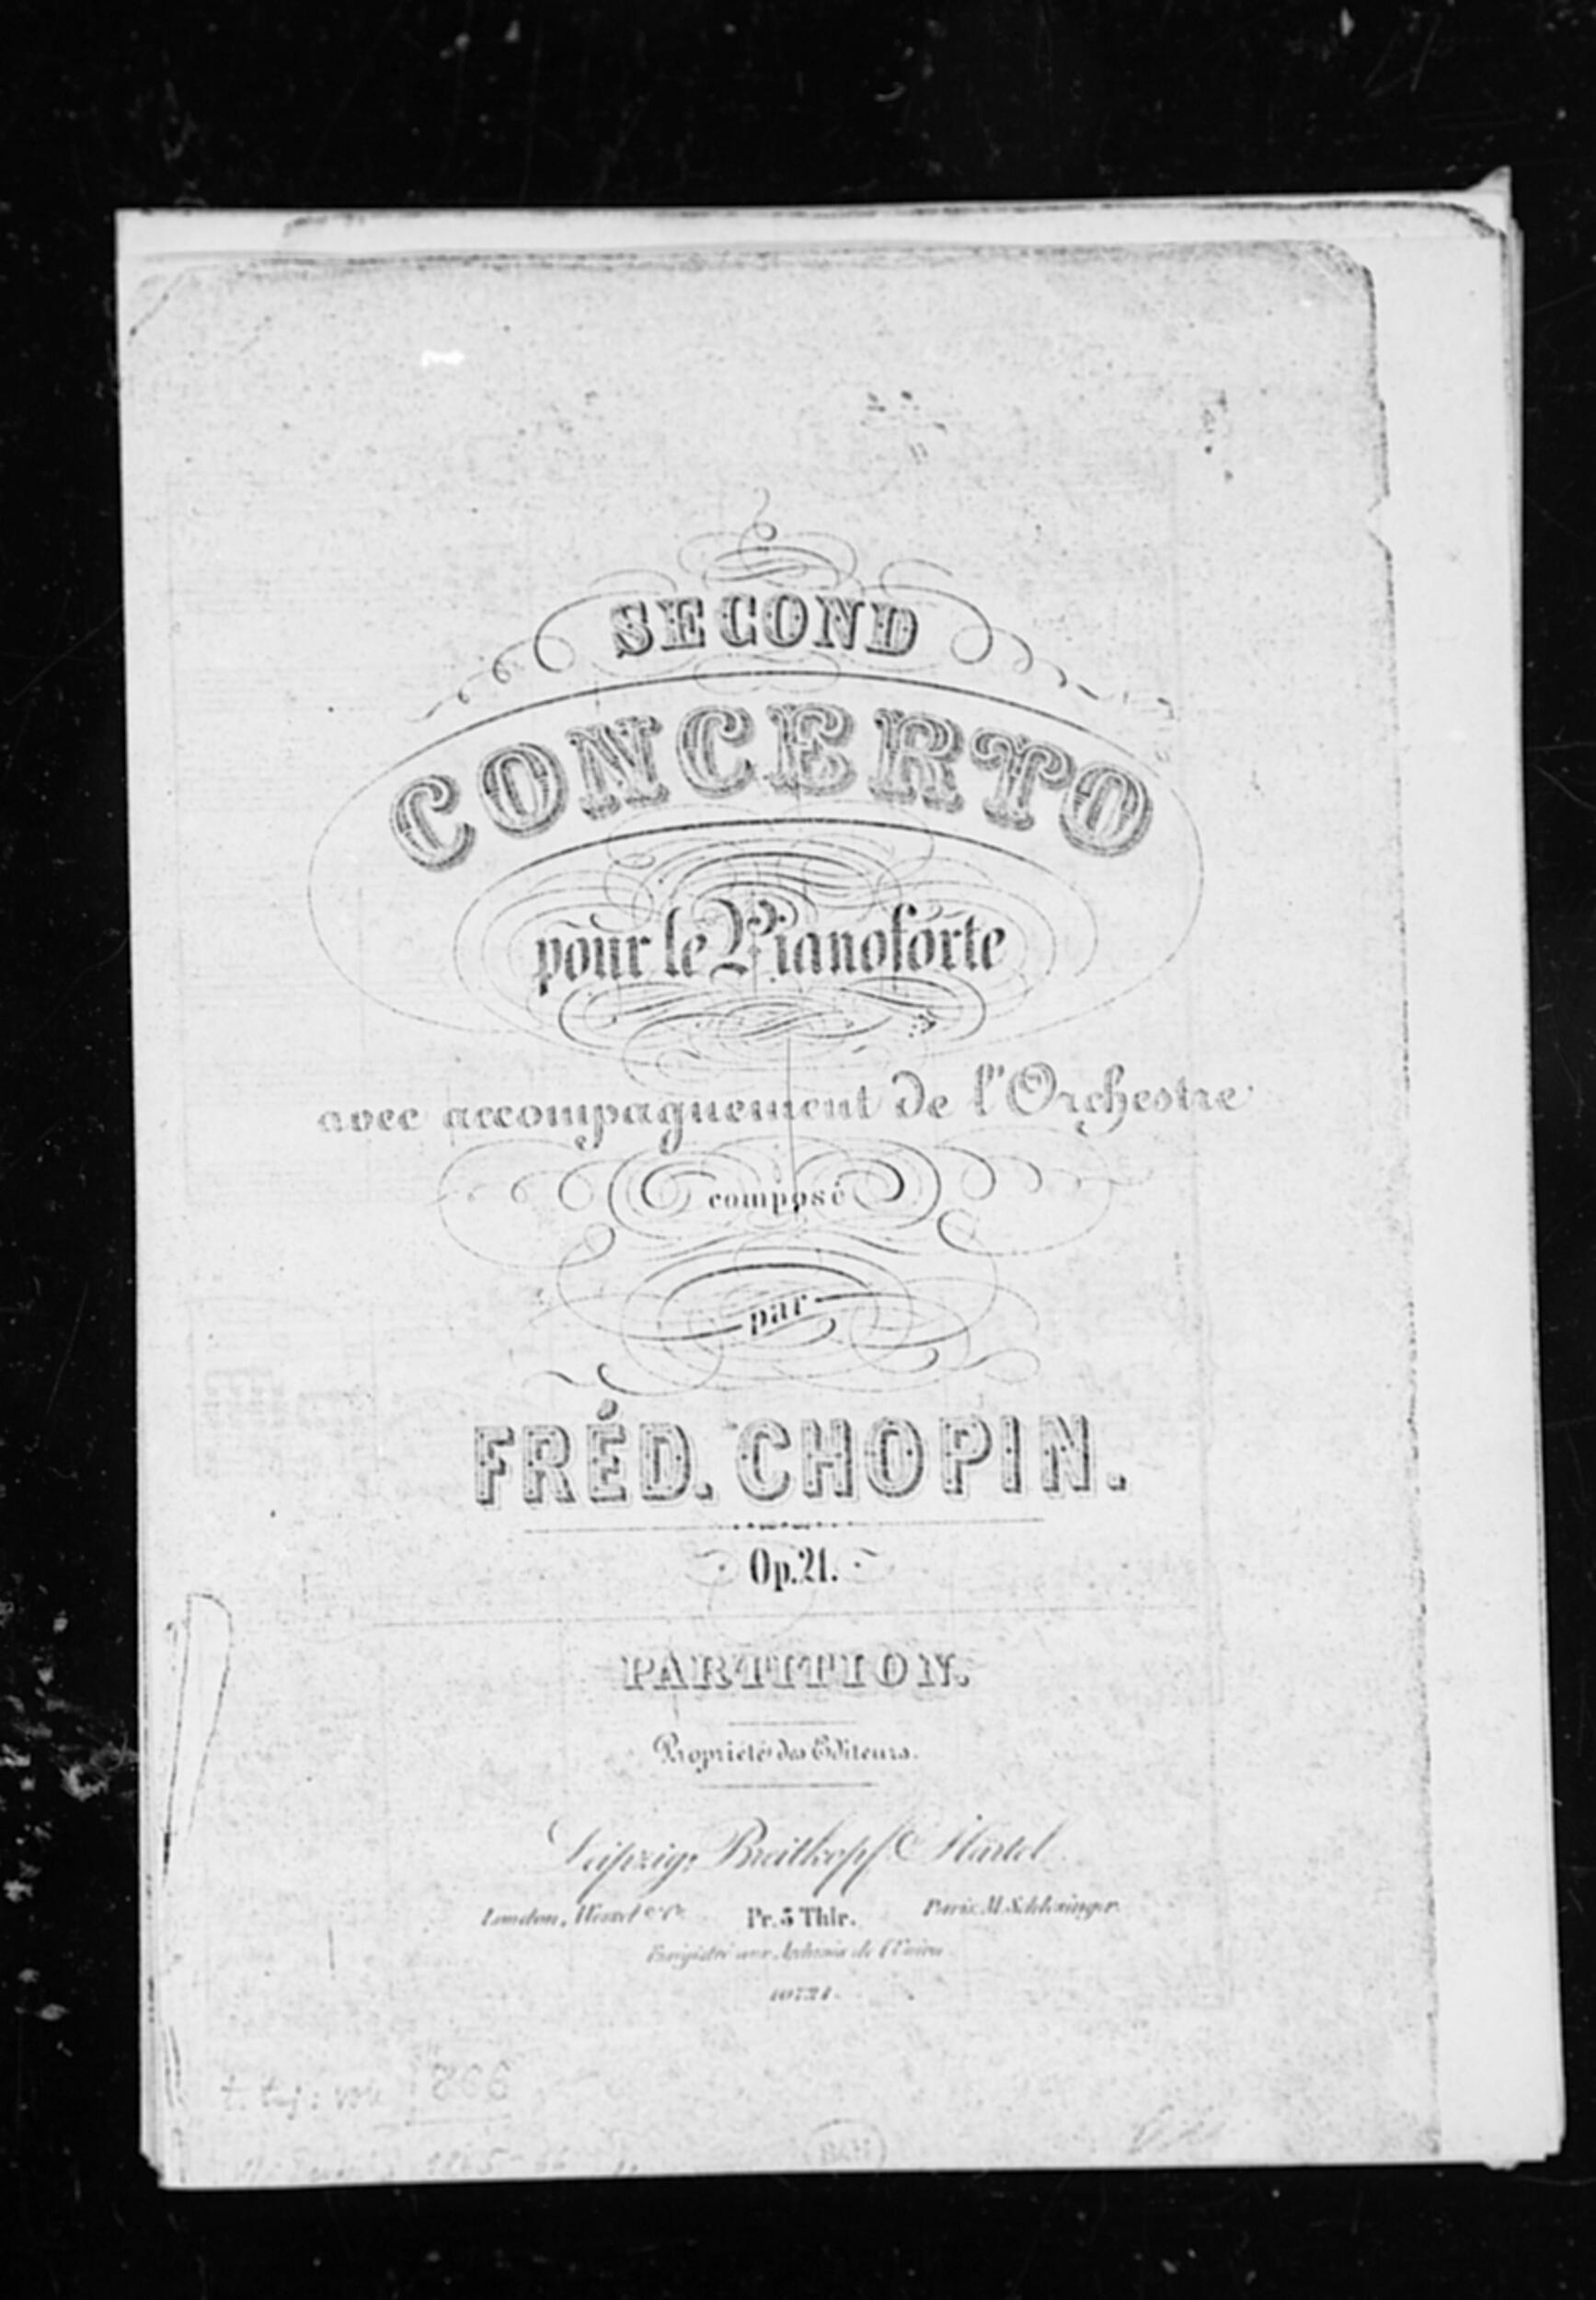 SECOND
CONCERTO
pour le Pianoforte
avec accompagnement de l'Orchestre
composé
par
FRÉD. CHOPIN.
Op. 21.
PARTITION.
Propriété des Editeurs.
Leipzig, Breitkopf & Härtel.
London, Wessel & Co. Pr. 5 Thlr. Paris, M. Schlesinger.
Enrégistré aux Archives de l'Union.
10721.